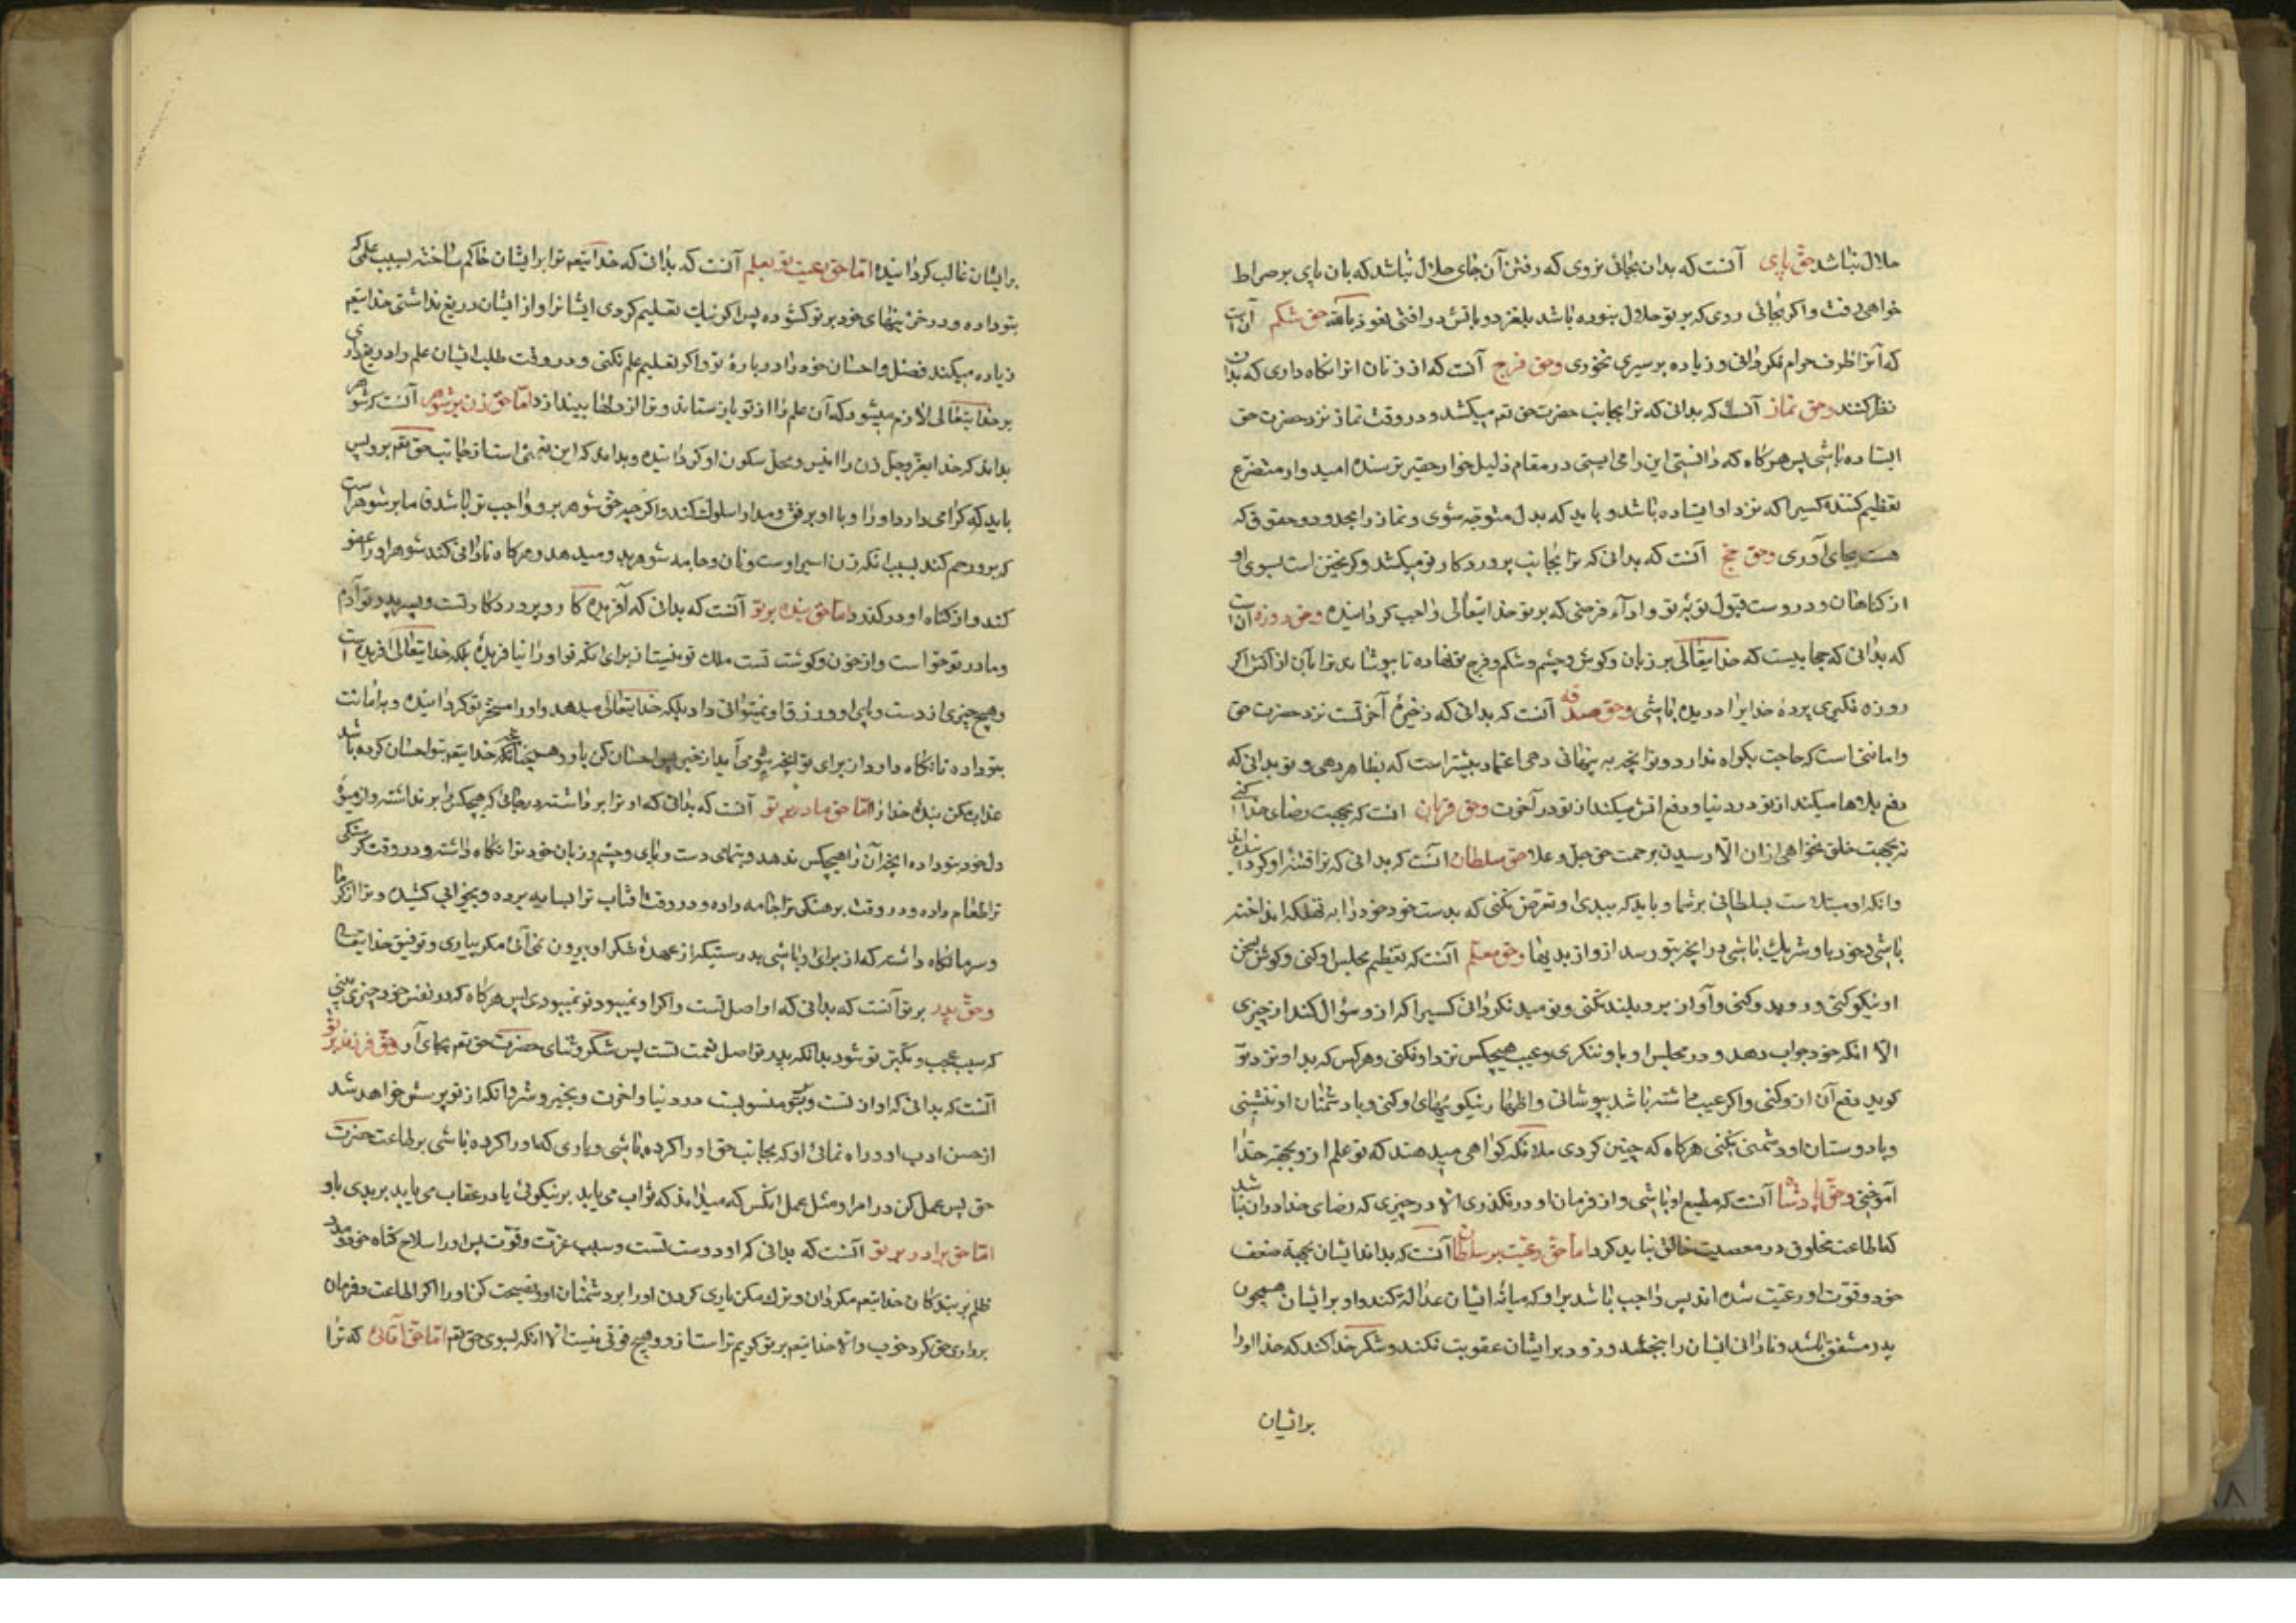 حلال نباشد حق پای آنست که بدان بجائی نروی که رفتن آن جای حلال نباشد که بان پای بر صراط
خواهی رفت و اکر بجائی روی که بر تو حلال نبوده باشد بلغزد و باتش در افتی نعوذ بالله حق شکم آن است
که آنرا ظرف حرام نکردانی و زیاده بر سیری نخوری و حق فرج آنست که از زنان انرا نکاه داری که بدان
نظر کنند و حق نماز آنست که بدانی که ترا بجانب حضرت حق تع میکشد و در وقت نماز نزد حضرت حق
ایستاده باشی پس هر کاه که دانستی این را می ایستی در مقام ذلیل خوار حقیر ترسنده امیدوار متضرع
تعظیم کننده کسیرا که نزد او ایستاده باشد و باید که بدل متوجه شوی و نماز را بحدود و حقوق که
هست بجای آوری و حق حج آنست که بدانی که ترا بجانب پروردکار تو میکشد و کریختن است بسوی او
از کناهان و در وست قبول توبه تو و ادآء فرضی که بر تو خدایتعالی واجب کردانیده و حق روزه آن است
که بدانی که حجابیست که خدایتعالی بر زبان و کوش و چشم و شکم و فرج تو نهاده تا بپوشاند ترا بآن از آتش اکر
روزه نکیری پردهٔ خدایرا دریده باشی و حق صدقه آنست که بدانی که ذخیرهٔ آخر تست نزد حضرت حق
و امانتی است که حاجت بکواه ندارد و ترا بانچه به پنهانی دهی اعتماد بیشتر است که بظاهر دهی و تو بدانی که
دفع بلاها میکند از تو در دنیا و دفع اتش میکند از تو در آخرت و حق قربان انست که بجهت رضای خدا کنی
نه بجهت خلق نخواهی ازان الا رسیدن برحمت حق جل و علا حق سلطان انست که بدانی که ترا فتنه او کردانیده
و انکه او مبتلاست بسلطانی بر شما و باید که ببدی او تعرض نکنی که بدست خود خود را به تهلکه انداخته
باشی و خود با و شریک باشی در انچه بتو رسد از و از بدیها و حق معلم آنست که تعظیم مجلس او کنی و کوش بسخن
او نیکو کنی و رو بدو کنی و آواز برو بلند نکنی و نومید نکردانی کسیرا که از و سؤال کند از چیزی
الا انکه خود جواب دهد و در مجلس او باو ننکری و عیب هیچکس نزد او نکنی و هر کس که بد او نزد تو
کوید دفع آن از و کنی و اکر عیب داشته باشد بپوشانی و اظهار نیکوئیهای او کنی و با دشمنان او ننشینی
و با دوستان او دشمنی نکنی هر کاه که چنین کردی ملائکه کواهی میدهند که تو علم از و بجهة خدا
آموختی و حق پادشا آنست که مطیع او باشی و از فرمان او در نکذری الا در چیزی که رضای خدا دران نباشد
که اطاعت مخلوق در معصیت خالق نباید کرد اما حق رعیت بر سلطان آنست که بداند ایشان بجهة ضعف
خود و قوت او رعیت شده اند پس واجب باشد بر او که میانهٔ ایشان عدالة کند و او بر ایشان همچون
پدر مشفق باشد و نادانی ایشان را ببخشد و زود بر ایشان عقوبت نکند و شکر خدا کند که خدا او را
بر ایشان
بر ایشان غالب کردانیده اما حق رعیت تو بعلم آنست که بدانی که خدایتعه ترا بر ایشان حاکم ساخته بسبب علمی که
بتو داده و در خزینهای خود بر تو کشوده پس اکر نیک تعلیم کردی ایشانرا و از ایشان دریغ نداشتی خدایتعه
زیاده میکند فضل و احسان خود را در بارهٔ تو و اکر تعلیم علم نکنی و در وقت طلب ایشان علم را دریغ داری
بر خدایتعالی لازم میشود که آن علم را از تو باز ستاند و ترا از دلها بیندازد اما حق زن بر شوهر آنست که شوهر
بداند که خدای عز و جل زن را انیس و محل سکون او کردانیده و بداند که این نعمتی است از جانب حق تعم برو پس
باید که کرامی دارد او را و با او برفق و مدارا سلوک کند و اکر چه حق شوهر برو واجب تر باشد فاما بر شوهر است
که برو رحم کند بسبب انکه زن اسیر اوست و نان و جامه شوهر بدو میدهد و هر کاه نادانی کند شوهر او را عفو
کند و از کناه او در کذرد اما حق بنده بر تو آنست که بدانی که آفریدهٔ کا رو پروردکار تست و پسر پدر تو آدم
و مادر تو حوا است و از خون و کوشت تست ملک تو نیست از برای انکه تو او را نیافریدهٔ بلکه خدایتعالی افریده است
و هیچ چیزی از دست و پای او و رزق او نمیتوانی داد بلکه خدایتعالی میدهد و او را مسخر تو کردانیده و بامانت
بتو داده تا نکاه دارد از برای تو انچه بتو می آید از خیر پس احسان کن باو همچنانکه خدایتعه بتو احسان کرده باشد
عذاب مکن بندهٔ خدا را اما حق مادر بر تو آنست که بدانی که او ترا برداشته در جائی که هیچکس را بر نداشته و از میوهٔ
دل خود بتو داده انچه آن را هیچکس ندهد و بتمامی دست و پای و چشم و زبان خود ترا نکاه داشته و در وقت کرسنکی
ترا طعام داده و در وقت برهنکی ترا جامه داده و در وقت آفتاب ترا بسایه برده و بیخوابی کشیده و ترا از کرما
و سرما نکاه داشته که از برای او باشی بدرستیکه از عهدهٔ شکر او بیرون نمی آئی مکر بیاری و توفیق خدایتعا
و حق پدر بر تو آنست که بدانی که او اصل تست و اکر او نمیبود تو نمیبودی پس هر کاه که در نفس خود چیزی بینی
که سبب عجب و تکبر تو شود بدانکه پدر تو اصل نعمت تست پس شکر و ثنای حضرت حق تعم بجای آر و حق فرزند بر تو
آنست که بدانی که او از تست و بتو منسوبست در دنیا و اخرت و بخیر و شر و انکه از تو پرسش خواهد شد
از حسن ادب او و راه نمائی او که بجانب حق او را کرده باشی و یاری که او را کرده باشی بر طاعت حضرت
حق پس عمل کن در امر او مثل عمل انکس که میداند که ثواب می یابد بر نیکوئی یا در عقاب می یابد بر بدی باو
اما حق برادر بر تو آنست که بدانی که او دوست تست و سبب عزت و قوت پس او را سلاح کناه خود و مدد
ظلم بر بندکان خدایتعم مکردان و ترک مکن یاری کردن او را بر دشمنان او و نصیحت کن او را اکر اطاعت و فرمان
برداری حق کرد خوب و الا خدایتعم بر تو کریم تراست از و و هیچ قوتی نیست الا انکه بسوی حق تعم اما حق آقائی که ترا